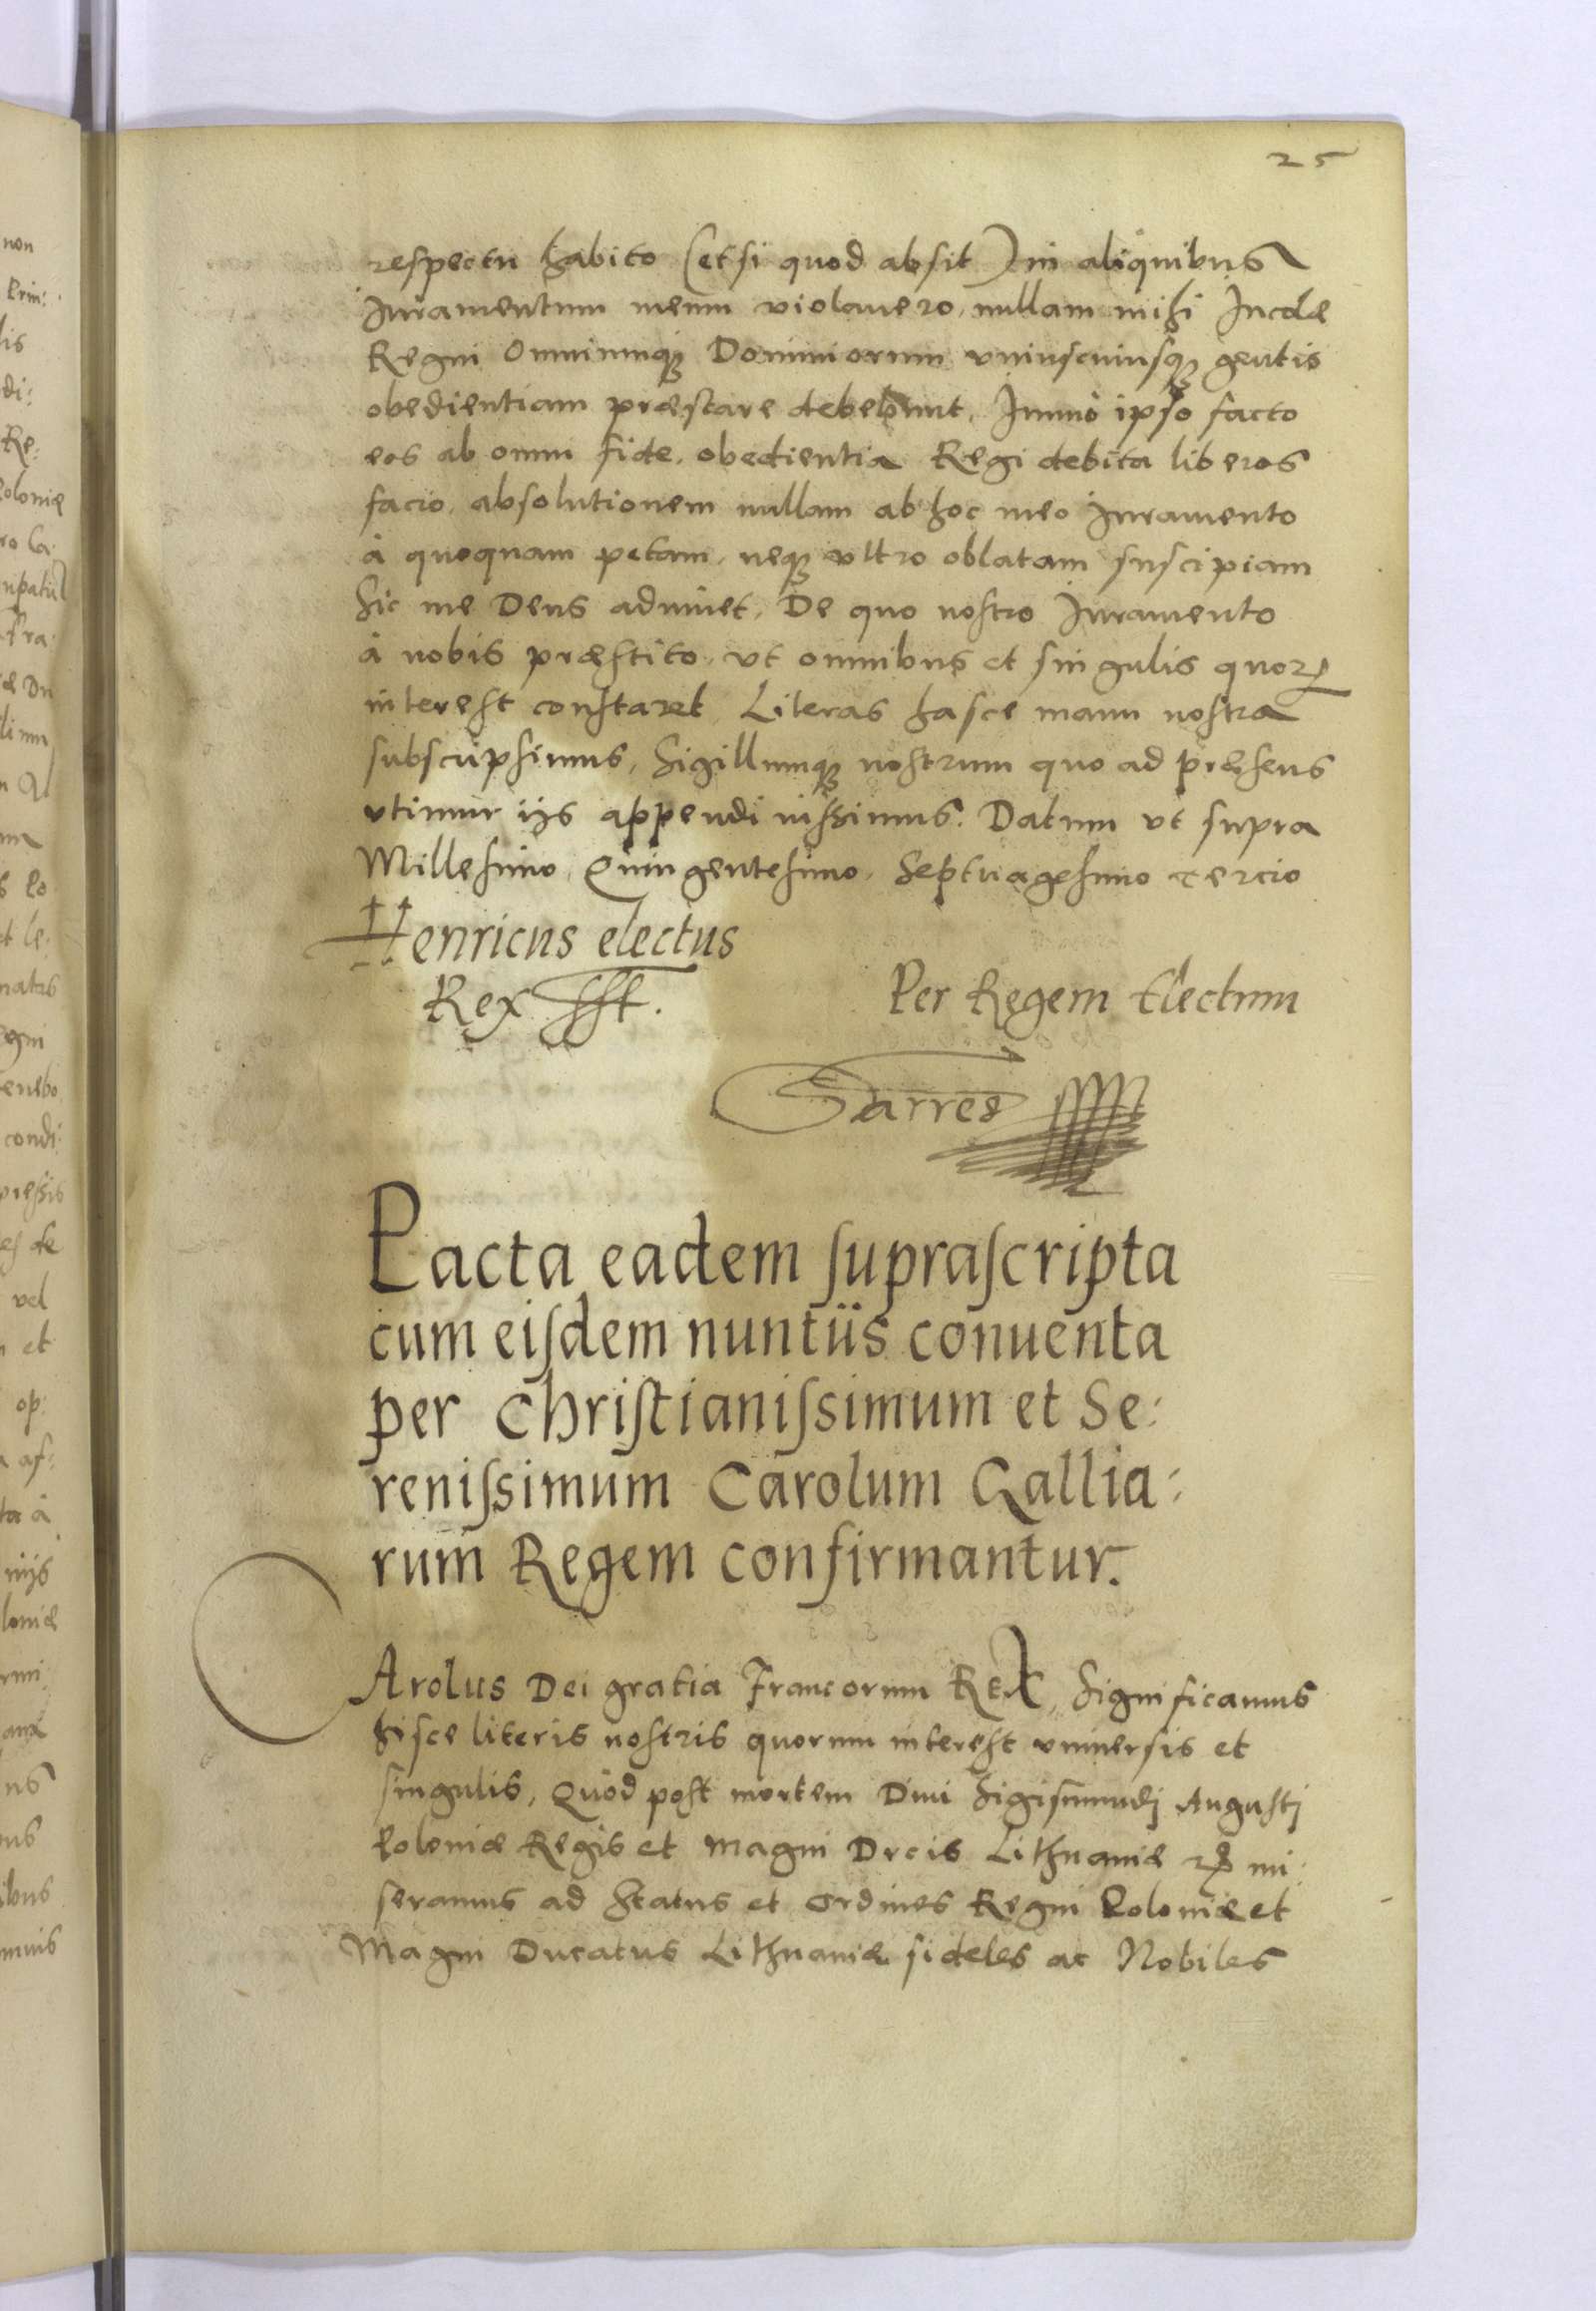 25
respectu habito (et si quod absit) in aliquibus
Juramentum meum violauero, nullam mihi Incolæ
Regni Omniumq; Dominiorum vniuscuiusq; gentis
obedientiam præstare debebunt. Jmmò ipso facto
eos ab omni fide, obedientia Regi debita liberos
facio, absolutionem nullam ab hoc meo Juramento
à quoquam petam, neq; vltro oblatam suscipiam
Sic me Deus adiuuet. De quo nostro Juramento
à nobis præstito, vt omnibus et singulis quoꝝ
interest constaret Literas hasce manu nostra
subscripsimus, Sigillumq; nostrum quo ad præsens
vtimur ijs appendi iussimus. Datum vt supra
Millesimo, Quingentesimo, Septuagesimo tercio
Henricus electus
Rex
Per Regem Electum
Sarred
Pacta eadem suprascripta
cum eisdem nuntiis conuenta
per Christianissimum et Se:
renissimum Carolum Gallia:
rum Regem confirmantur.
CArolus Dei gratia Francorum REX, Significamus
hisce literis nostris quorum interest vniuersis et
singulis, Quòd post mortem Diui Sigismundj Augustj
Poloniæ Regis et Magni Dvcis Lithuaniæ mi:
seramus ad Status et Ordines Regni Poloniæ et
Magni Ducatus Lithuaniæ fideles ac Nobiles